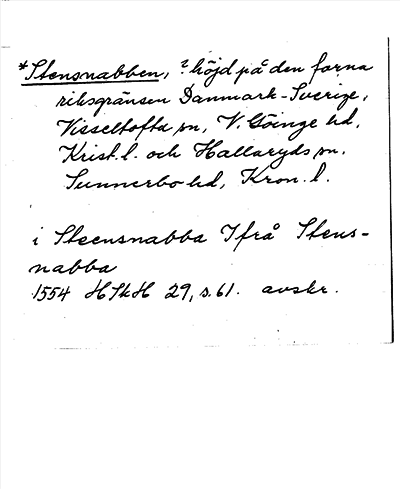 *Stensnabben, ? höjd på den forna
riksgränsen Danmark-Sverige,
Visseltofta sn, V. Göinge hd,
Krist. l. och Hallaryds sn,
Sunnerbo hd, Kron. l.
i Steensnabba Ifrå Stens-
nabba
1554 HSkH 29, s. 61. avskr.